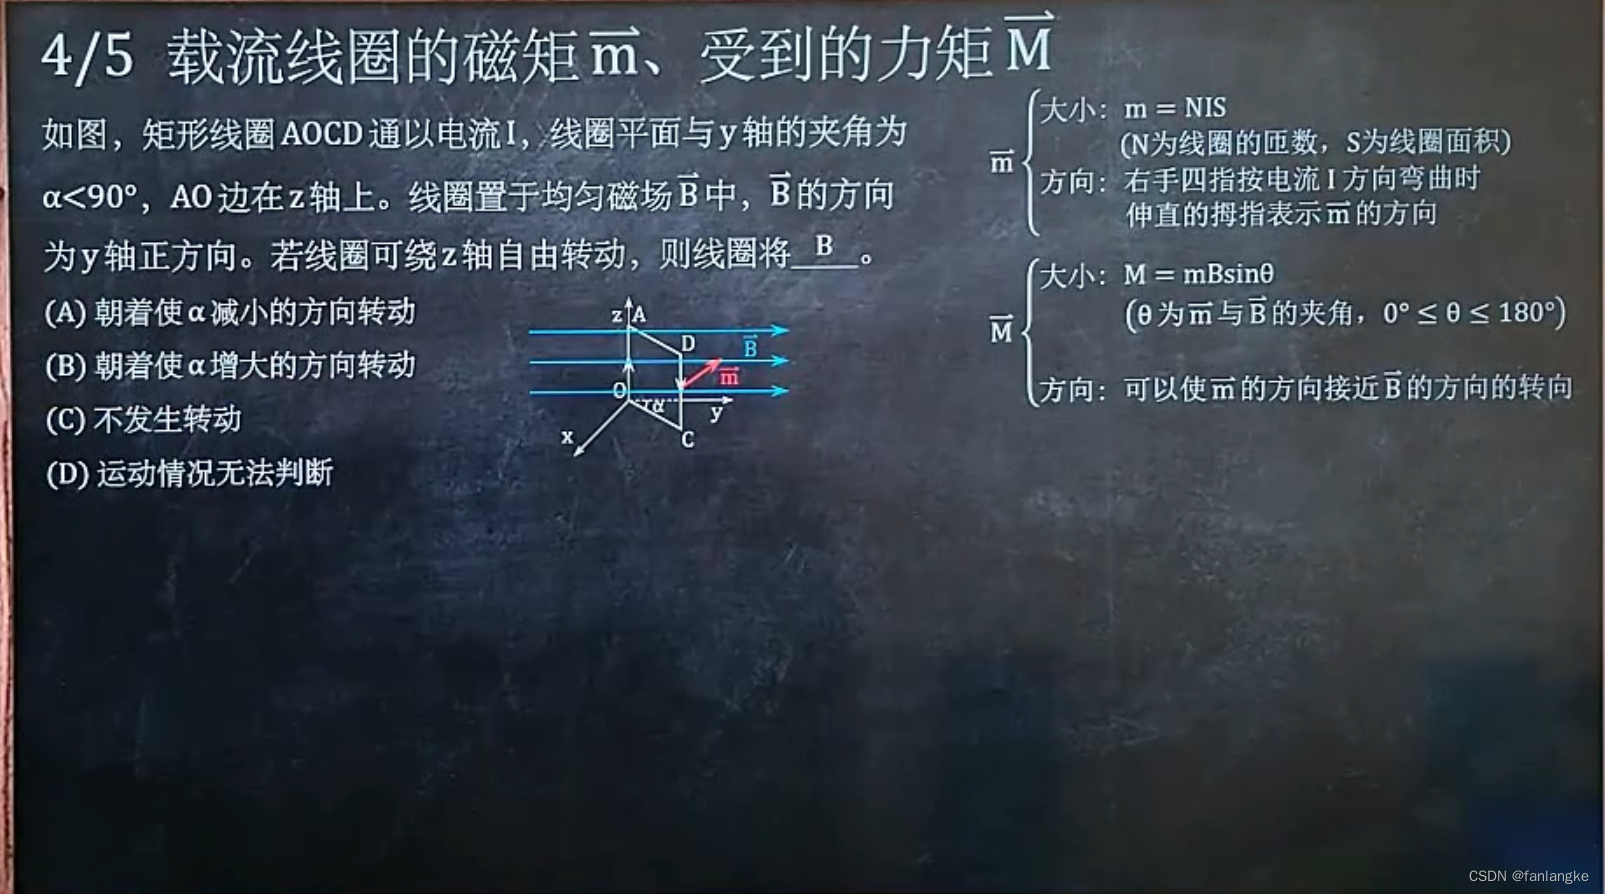 4/5 载流线圈的磁矩m、受到的力矩M
如图，矩形线圈AOCD通以电流I，线圈平面与y轴的夹角为
α<90°，AO边在z轴上。线圈置于均匀磁场B中，B的方向
为y轴正方向。若线圈可绕z轴自由转动，则线圈将 B 。
(A) 朝着使α减小的方向转动
(B) 朝着使α增大的方向转动
(C) 不发生转动
(D) 运动情况无法判断
z A
D
B
m
O
α
y
x
C
m
大小：m = NIS
(N为线圈的匝数，S为线圈面积)
方向：右手四指按电流I方向弯曲时
伸直的拇指表示m的方向
M
大小：M = mBsinθ
(θ为m与B的夹角，0° ≤ θ ≤ 180°)
方向：可以使m的方向接近B的方向的转向
CSDN @fanlangke